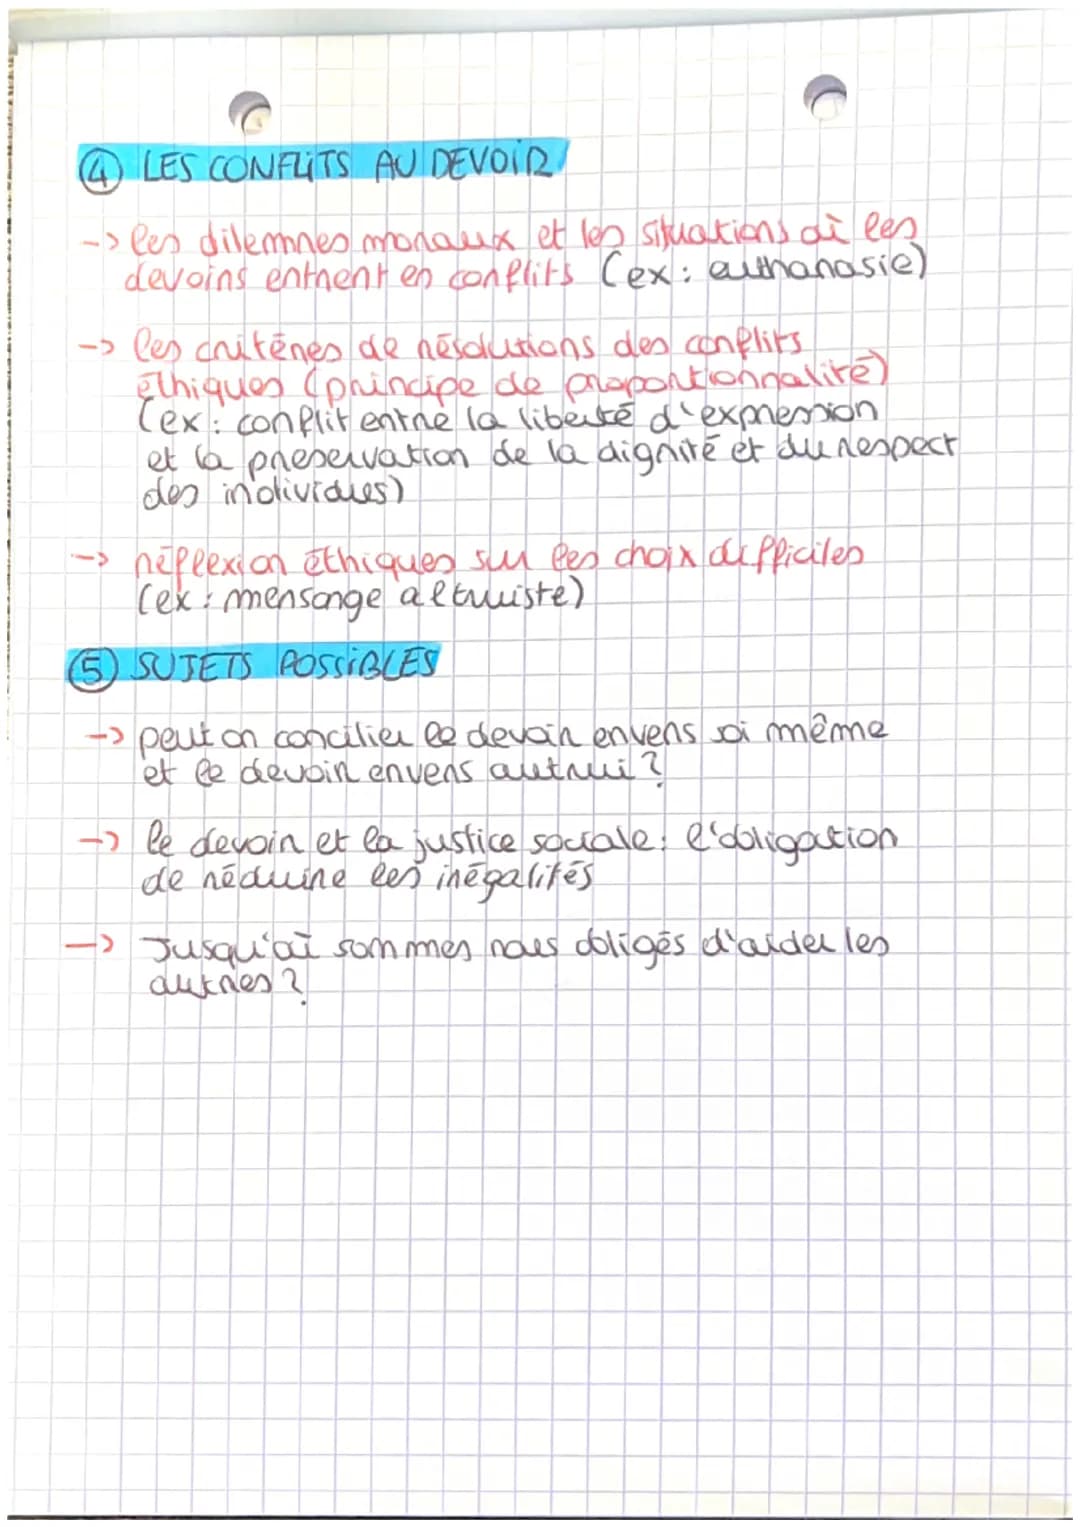 ④ LES CONFLITS AU DEVOIR
-> les dilemnes moraux et les situations où les
devoirs entrent en conflits (ex: authanasie)
-> les critères de résolutions des conflits
éthiques (principe de proportionnalité)
(ex: conflit entre la liberté d'expression
et la preservation de la dignité et du respect
des individues)
-> réflexion éthiques sur les choix difficiles
(ex: mensonge altruiste)
⑤ SUJETS POSSIBLES
-> peut on concilier le devoir envers soi même
et le devoir envers autrui ?
-> le devoir et la justice sociale: l'obligation
de réduire les inégalités
-> Jusqu'où sommes nous obligés d'aider les
autres ?